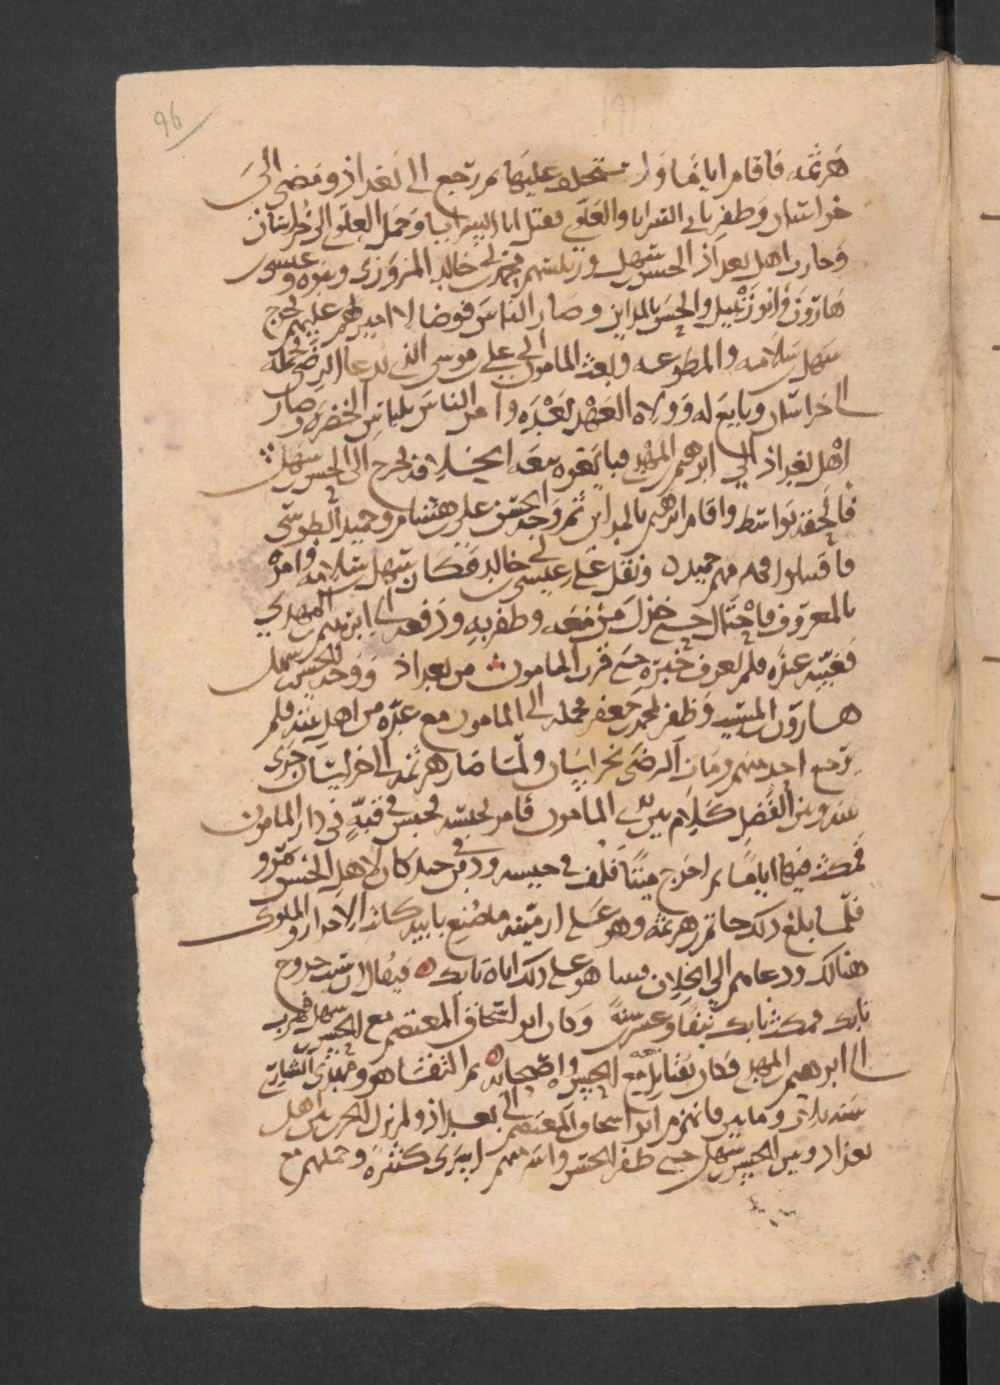 96
هرثمه فاقام اياما واستخلف عليها ثم رجع الى بغداذ ومضى الى
خراسان وظفر بابي السرايا والعلوي فقتل ابا السرايا وحمل العلوي الى خراسان
وحارب اهل بغداذ الحسن بن سهل ورئيسهم محمد بن ابي خالد المروزي وبنوه وعيسى
هارون وابو زنبيل والحسن بالمداين وصار الناس فوضا لا امير عليهم فخرج
سهل بن سلامه والمطوعه وبعث المامون الى علي بن موسى الذي يدعا الرضى فحمله
الى خراسان وبايع له وولاه العهد بعده وامر الناس بلباس الخضره وصار
اهل بغداذ الى ابرهيم بن المهدي فبايعوه بيعه الخلافه فخرج الى الحسن بن سهل
فالحقه بواسط واقام ابرهيم بالمداين ثم وجه الحسن علي بن هشام وحميد الطوسي
فاقتتلوا فهزمهم حميد ونقل علي عيسى بن ابي خالد فكان سهل بن سلامه وامره
بالمعروف فاحتال حتى خذل من معه وظفر به ودفعه الى ابرهيم بن المهدي
فغيبه عنده فلم يعرف خبره حتى قرب المامون من بغداذ ووجه الحسن بن سهل
هارون بن المسيب وظفر بمحمد بن جعفر فحمله الى المامون مع عده من اهل بيته فلم
يرجع احد منهم ومات الرضى بخراسان ولما صار هرثمه الى خراسان جرى
بينه وبين الفضل كلام بين يدي المامون فامر بحبسه فحبس في قبه في دار المامون
فمكث فيها اياما ثم اخرج ميتا فلف في خيشه ودفن في خندق كان لاهل الحبس بمرو
فلما بلغ ذلك حاتم بن هرثمه وهو على ارمينيه ما صنع بابيه كاتب الاحرار والملوك
هنالك ودعاهم الى الخلاف فبينا هو على ذلك اتاه فيقال ان سبب خروج
بابك فمكث بابك نيفا وعشرين سنة وكان ابو اسحاق المعتصم مع الحسن بن سهل فهرب
الى ابرهيم بن المهدي فكان يقاتل معه الحسن واصحابه ثم التقيا هو ومهدي الشاري
سنه ثلاث ومايتين فانهزم ابو اسحاق المعتصم الى بغداذ ولم يزل الحرب بين اهل
بغداد وبين الحسن بن سهل حتى ظفر الحسن واسر منهم اسرى كثيرة وحملهم مع